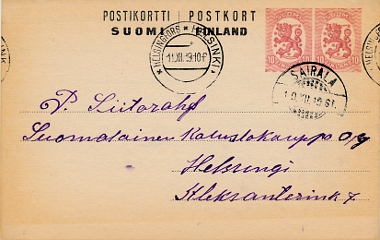 POSTIKORTTI | POSTKORT
SUOMI FINLAND
HELSINGFORS * HELSINKI *
11.XII.19.10 F
10 10
SAIRALA
HELSINKI
P.
Suomalainen Kalustokauppa O/y
Helsingi
Aleksanterink 7.